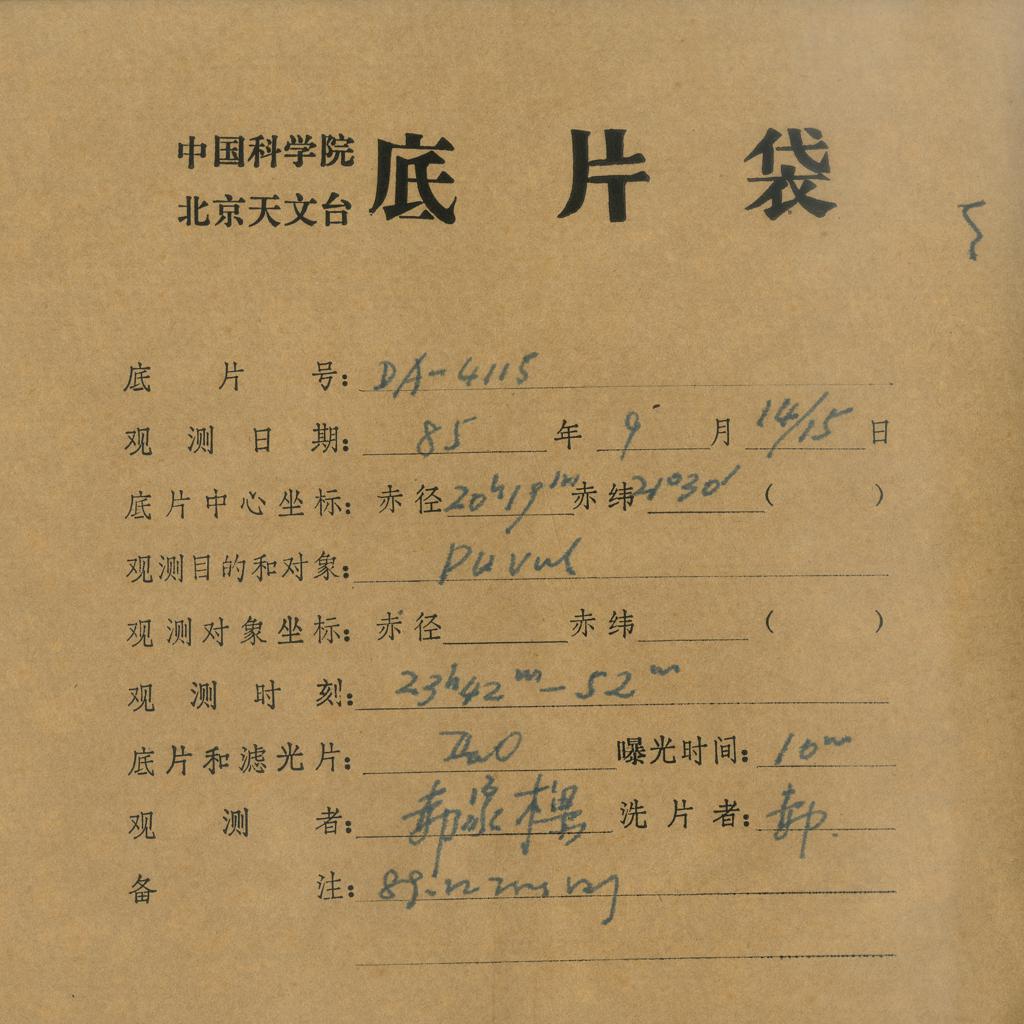 中国科学院
北京天文台
底片袋
底片号: DA-4115
观测日期: 85年9月14/15日
底片中心坐标: 赤径20h19m赤纬21°30′( )
观测目的和对象: PU Vul
观测对象坐标: 赤径 赤纬 ( )
观测时刻: 23h42m-52m
底片和滤光片: IIaO 曝光时间: 10m
观测者: 洗片者: 郝.
备注: